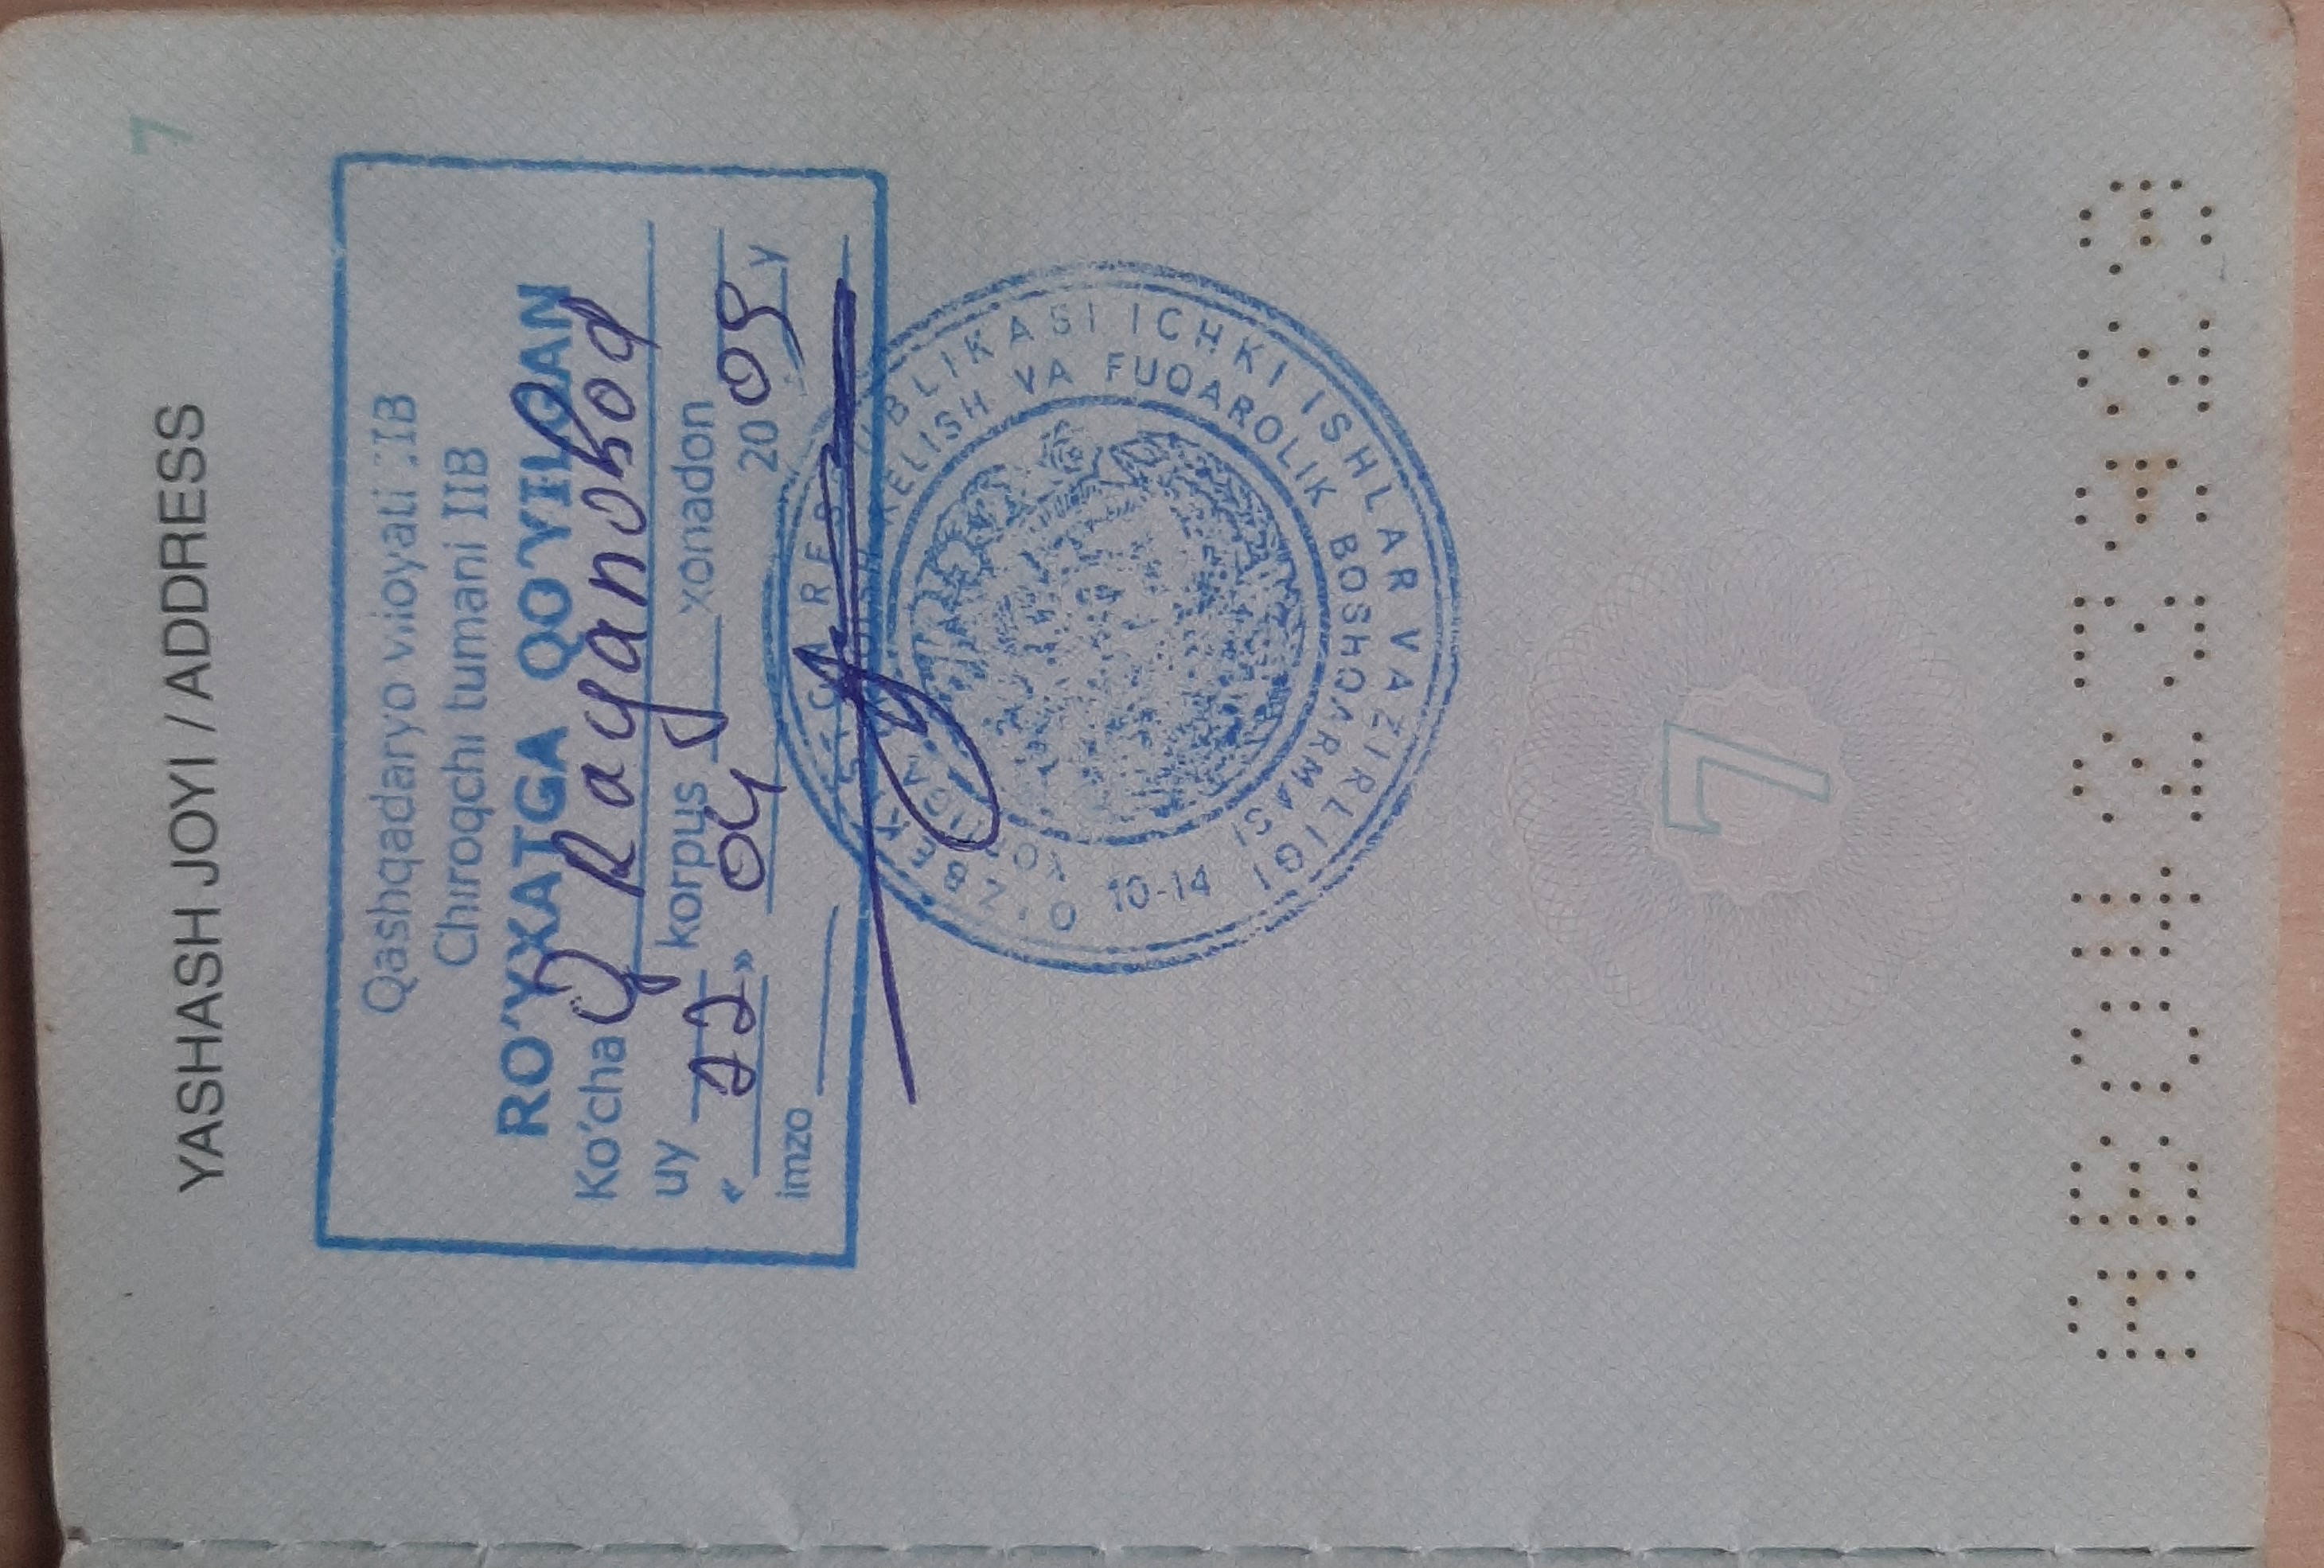 7
YASHASH JOYI / ADDRESS
Qashqadaryo viloyati IIB
Chiroqchi tumani IIB
RO'YXATGA QO'YILGAN
Ko'cha
uy korpus xonadon
« 22 » 04 20 09 y
imzo
O'ZBEKISTON RESPUBLIKASI ICHKI ISHLAR VAZIRLIGI
KELISH VA FUQAROLIK BOSHQARMASI
10-14
7